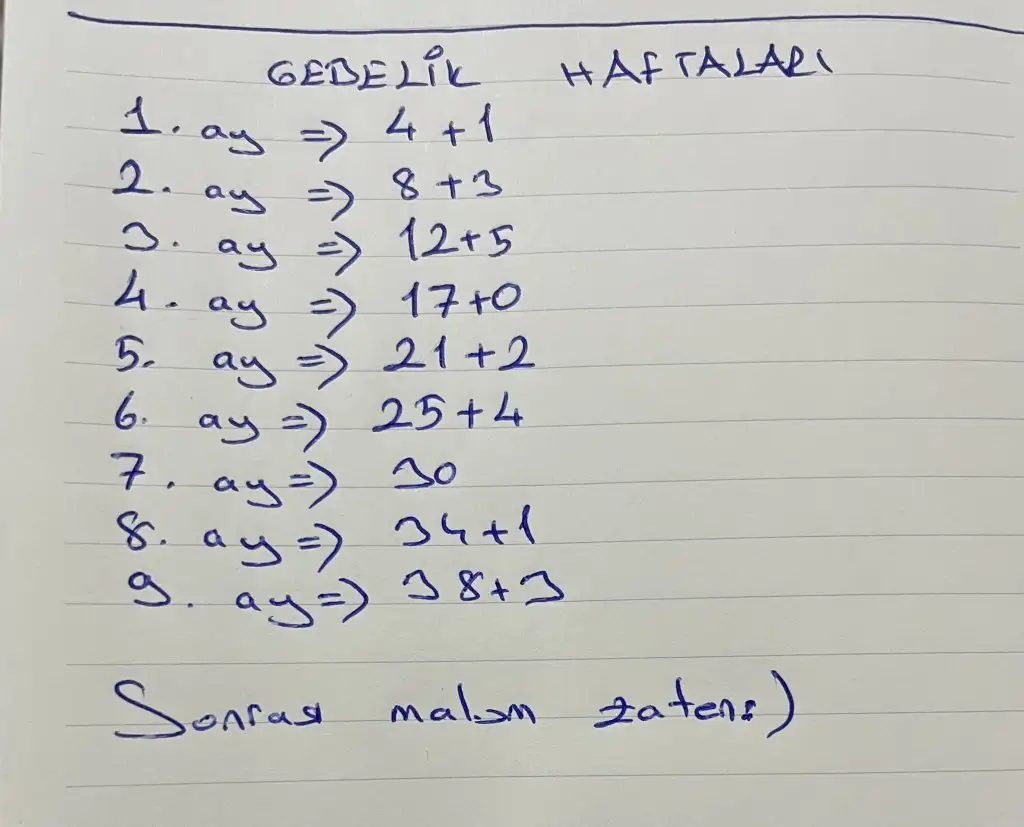 GEBELİK HAFTALARI
1. ay => 4+1
2. ay => 8+3
3. ay => 12+5
4. ay => 17+0
5. ay => 21+2
6. ay => 25+4
7. ay => 30
8. ay => 34+1
9. ay => 38+3
Sonrası malum zaten:)